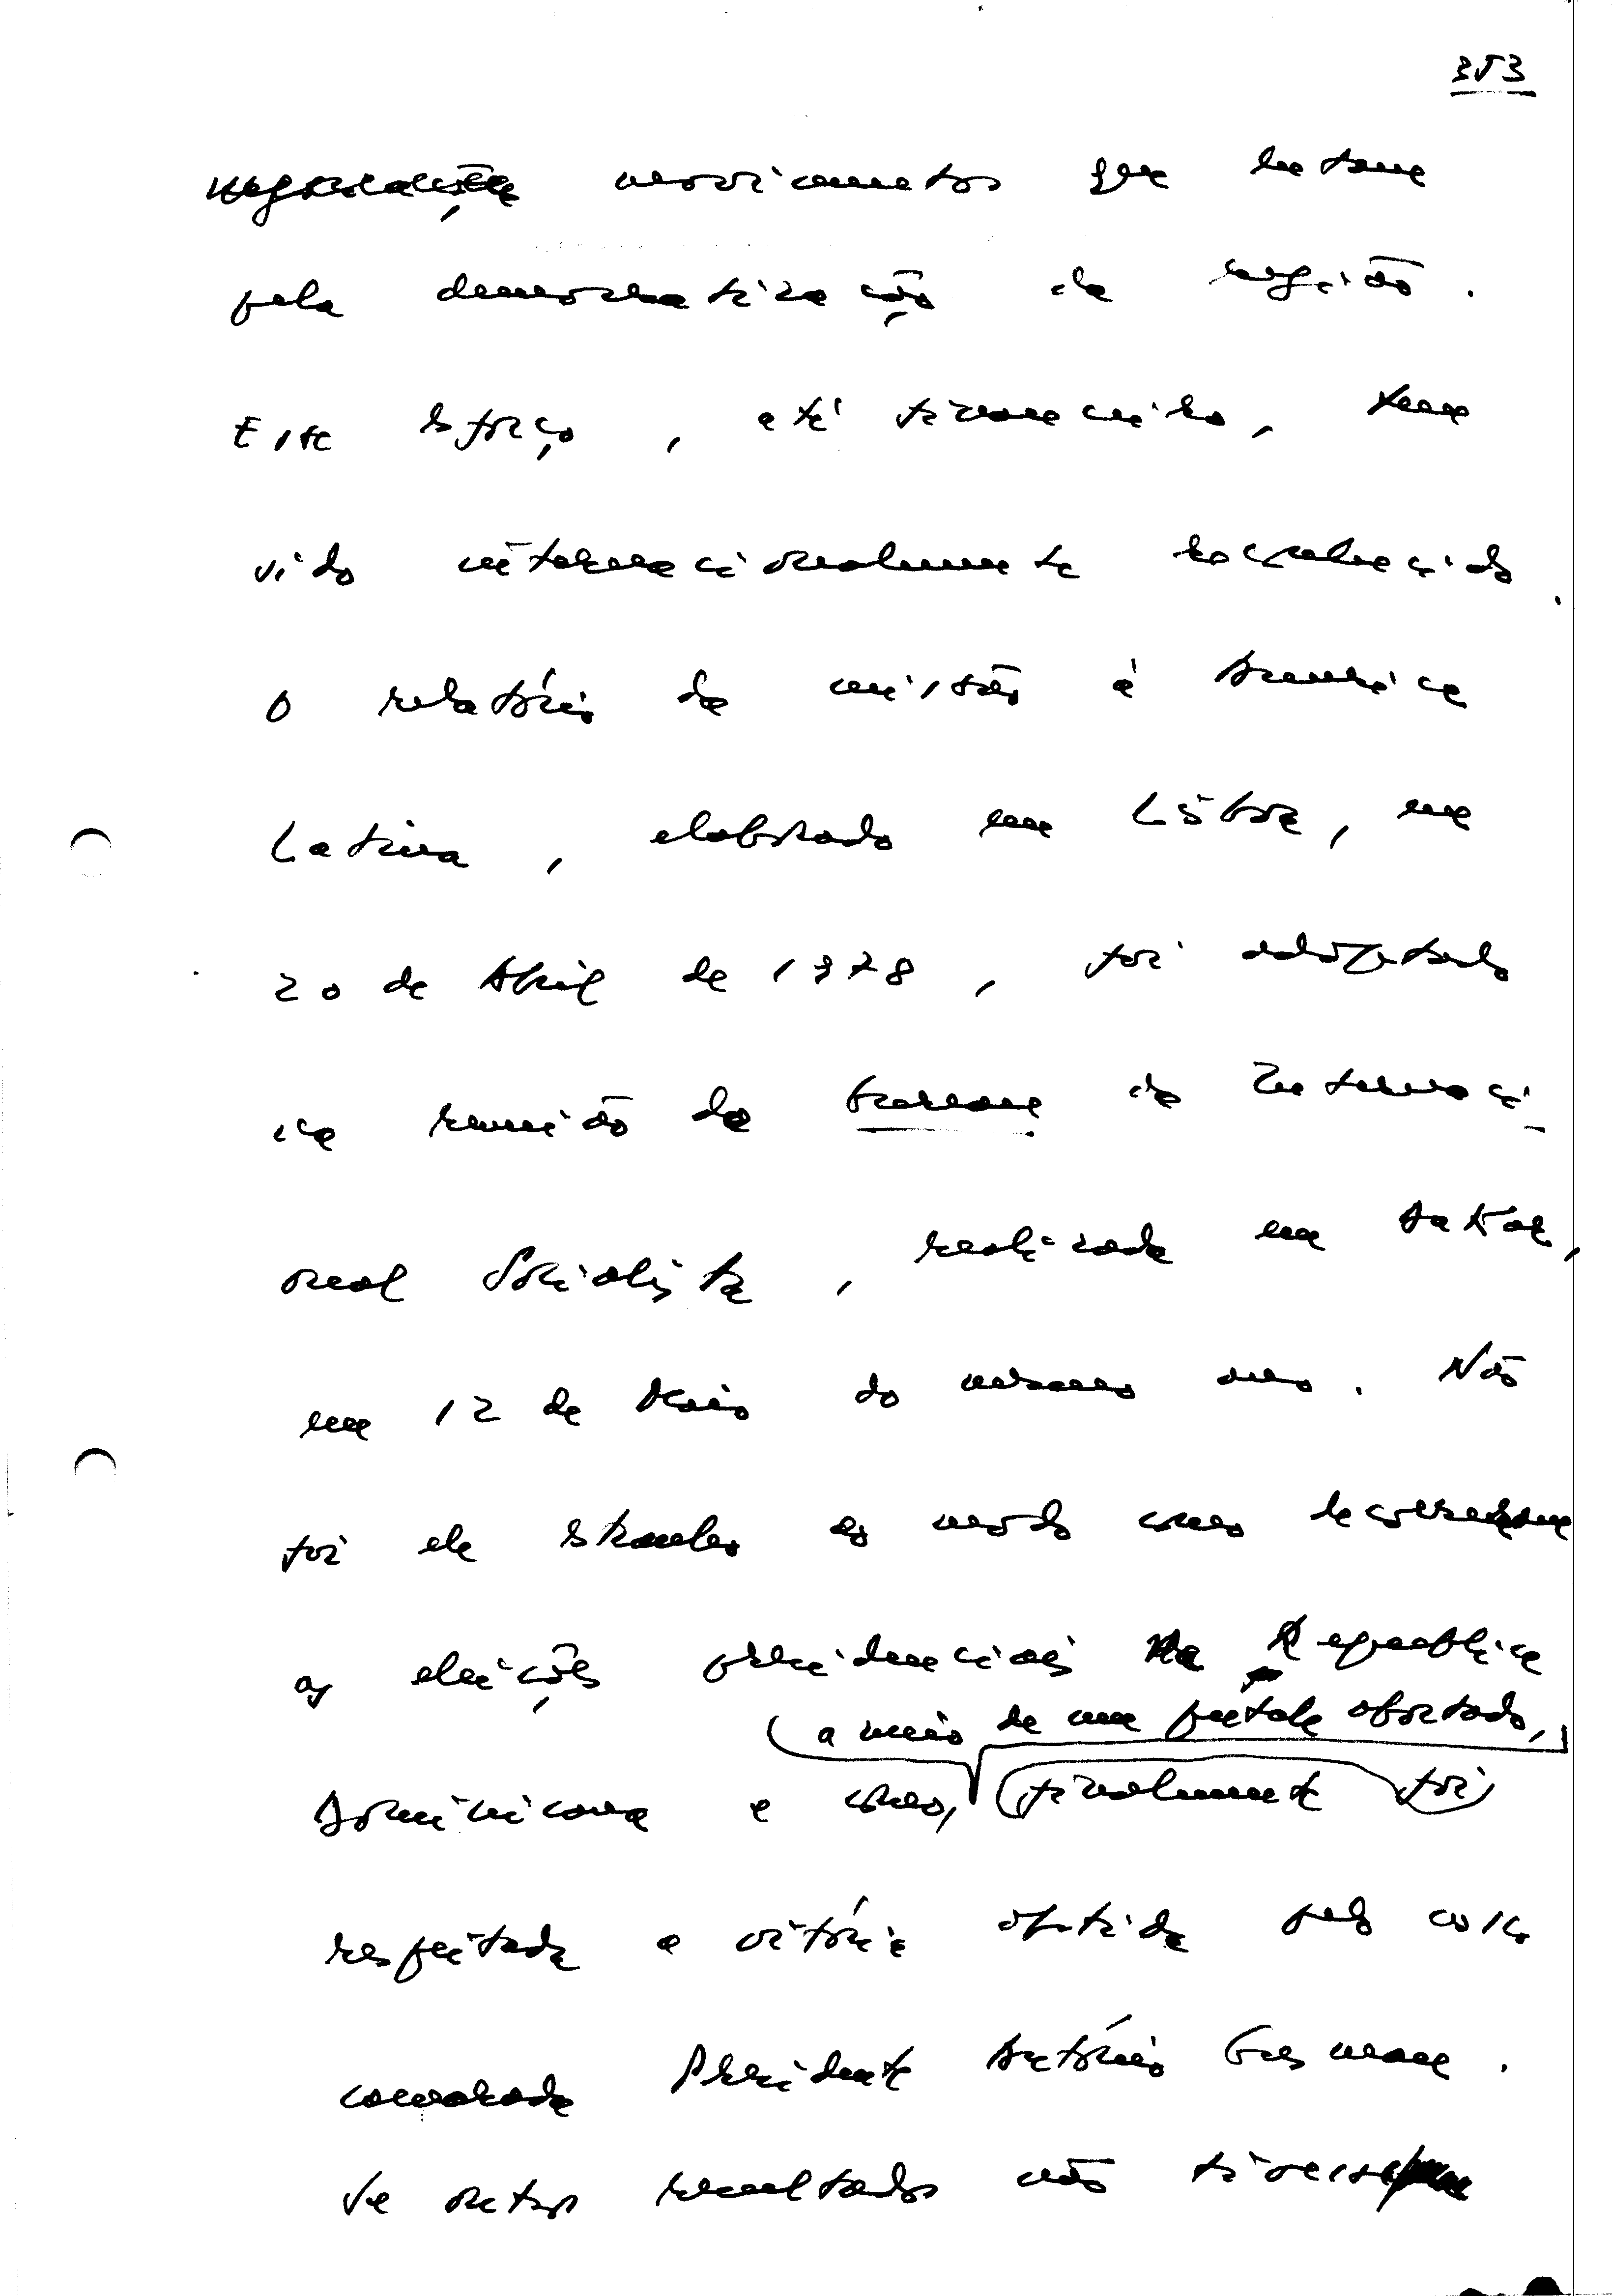 353
movimentos que lutam
pela democratização da região.
Esse esforço, até tem
sido internacionalmente reconhecido.
O relatório da missão à América
Latina, elaborado em Lisboa, em
20 de Abril de 1978, foi adoptado
na reunião do bureau da Internaci-
onal Socialista, realizada em Dakar,
em 12 de Maio do mesmo ano. Não
foi ele estranho ao modo como decorreram
as eleições presidenciais na República
(a meio de um golpe abortado,
Dominicana e como, finalmente foi
respeitada a vitória obtida pelo nosso
camarada Presidente António Gusman.
Se outros resultados não tivesse